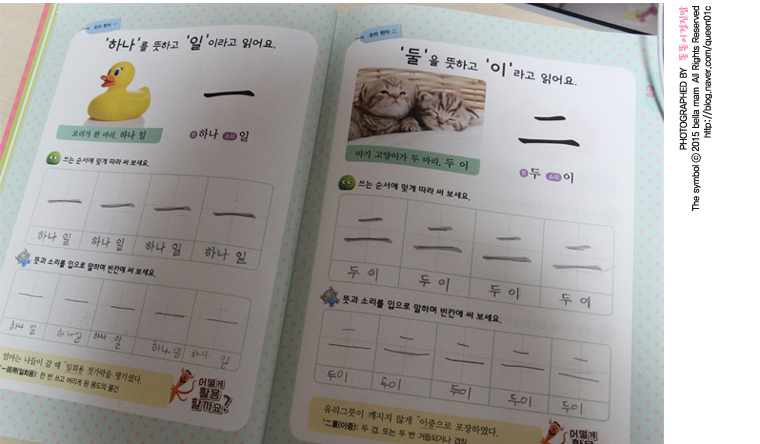 숫자 한자 一
'하나'를 뜻하고 '일'이라고 읽어요.
一
오리가 한 마리, 하나 일
뜻 하나 소리 일
쓰는 순서에 맞게 따라 써 보세요.
一 一 一 一
하나 일 하나 일 하나 일 하나 일
뜻과 소리를 입으로 말하며 빈칸에 써 보세요.
一 一 一 一 一
하나 일 하나일 하나 일 하나일 하나 일
엄마는 나들이 갈 때 '일회용 젓가락을 챙기셨다.
(일회용): 한 번 쓰고 버리게 된 용도의 물건
어떻게
활용
할까요?
숫자 한자 二
'둘'을 뜻하고 '이'라고 읽어요.
二
아기 고양이가 두 마리, 두 이
뜻 두 소리 이
쓰는 순서에 맞게 따라 써 보세요.
二 二 二 二
두 이 두 이 두 이 두 이
뜻과 소리를 입으로 말하며 빈칸에 써 보세요.
二 二 二 二 二
두이 두이 두이 두이 두이
유리그릇이 깨지지 않게 '이중으로 포장하였다.
*二重(이중): 두 겹, 또는 두 번 거듭되거나 겹침
어떻게
PHOTOGRAPHED BY
The symbol ⓒ 2015 bella mam All Rights Reserved
http://blog.naver.com/queen01c